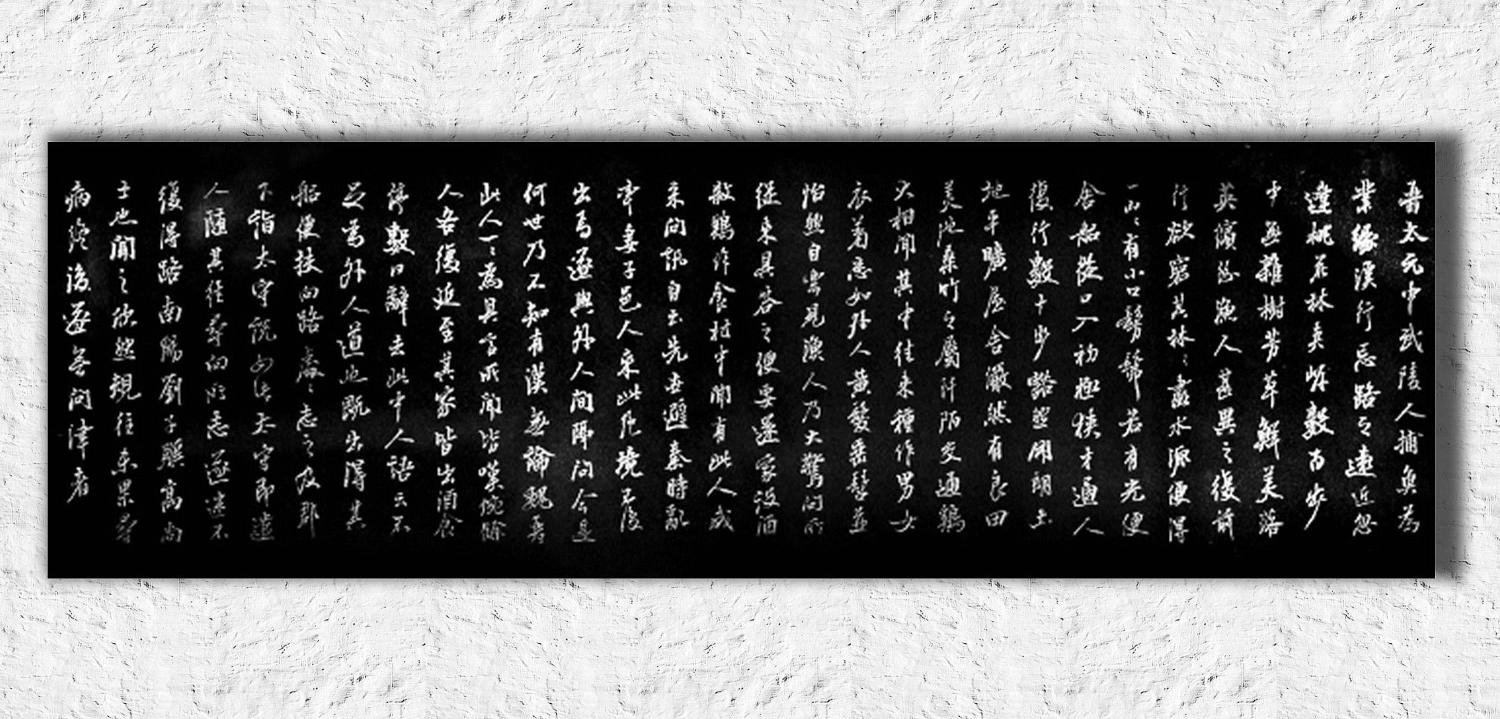 晉太元中武陵人捕魚為
業緣溪行忘路之遠近忽
逢桃花林夾岸數百步
中無雜樹芳草鮮美落
英繽紛漁人甚異之復前
行欲窮其林々盡水源便得
一山々有小口髣髴若有光便
舍船從口入初極狹才通人
復行數十步豁然開朗土
地平曠屋舍儼然有良田
美池桑竹之屬阡陌交通鷄
犬相聞其中往來種作男女
衣著悉如外人黃髮垂髫並
怡然自樂見漁人乃大驚問所
從來具答之便要還家設酒
殺鷄作食村中聞有此人咸
來問訊自云先世避秦時亂
率妻子邑人來此絕境不復
出焉遂與外人間隔問今是
何世乃不知有漢無論魏晉
此人一一為具言所聞皆嘆惋餘
人各復延至其家皆出酒食
停數日辭去此中人語云不
足為外人道也既出得其
船便扶向路處々志之及郡
下詣太守說如此太守即遣
人隨其往尋向所志遂迷不
復得路南陽劉子驥高尚
士也聞之欣然規往未果尋
病終後遂無問津者